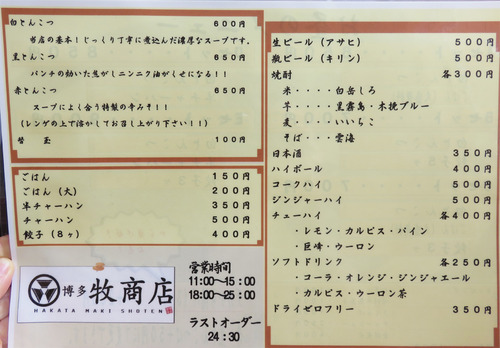 白とんこつ 600円
当店の基本！じっくり丁寧に煮込んだ濃厚なスープです。
黒とんこつ 650円
パンチの効いた焦がしニンニク油がくせになる！！
赤とんこつ 650円
スープによく合う特製の辛みそ！！
（レンゲの上で溶かしてお召し上がり下さい！！）
替玉 100円
ごはん 150円
ごはん（大） 200円
半チャーハン 350円
チャーハン 500円
餃子（8ヶ） 400円
博多 牧商店
HAKATA MAKI SHOTEN
営業時間
11:00～15:00
18:00～25:00
ラストオーダー
24:30
生ビール（アサヒ） 500円
瓶ビール（キリン） 500円
焼酎 各300円
米・・・・白岳しろ
芋・・・・黒霧島・木挽ブルー
麦・・・・いいちこ
そば・・・雲海
日本酒 350円
ハイボール 400円
コークハイ 500円
ジンジャーハイ 500円
チューハイ 各400円
・レモン・カルピス・パイン
・巨峰・ウーロン
ソフトドリンク 各250円
・コーラ・オレンジ・ジンジャエール
・カルピス・ウーロン茶
ドライゼロフリー 350円